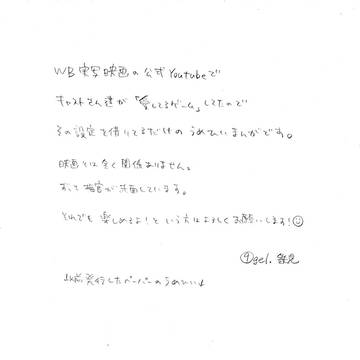 WB実写映画の公式Youtubeで
キャストさん達が「愛してるゲーム」してたので
その設定を借りてるだけのうめひいまんがです。
映画とは全く関係ありません。
すって 共闘しています。
それでも楽しめるよ!という方はよろしくお願いします!
発行したペーパーのうめひい↓